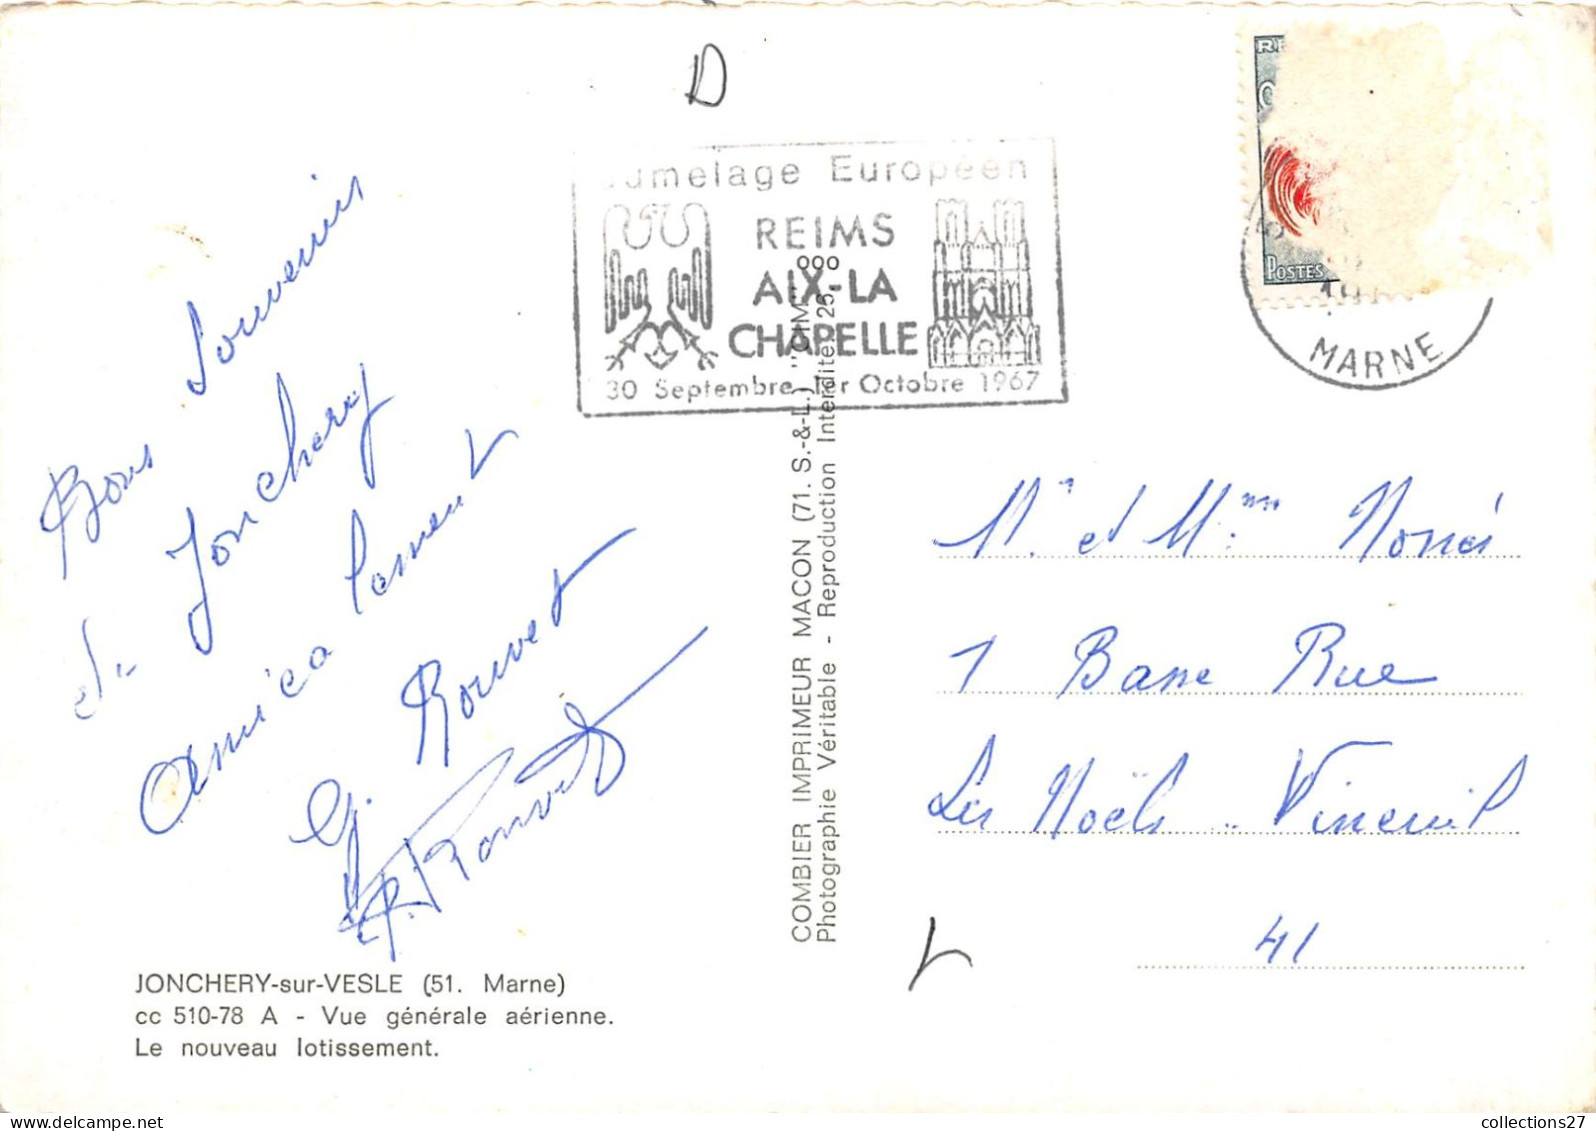 D
Jumelage Européen
REIMS
AIX-LA
CHAPELLE
30 Septembre 1er Octobre 1967
RE
POSTES
MARNE
Bons Souvenirs
de Jonchery
Amicalement
G. Rouvet
COMBIER IMPRIMEUR MACON (71. S.-&-L.) "CIM"
Photographie Véritable - Reproduction Interdite 26, ooo
Mr. et Mme
1 Basse Rue
Les Noëls - Vineuil
41
JONCHERY-sur-VESLE (51. Marne)
cc 510-78 A - Vue générale aérienne.
Le nouveau lotissement.
collections27